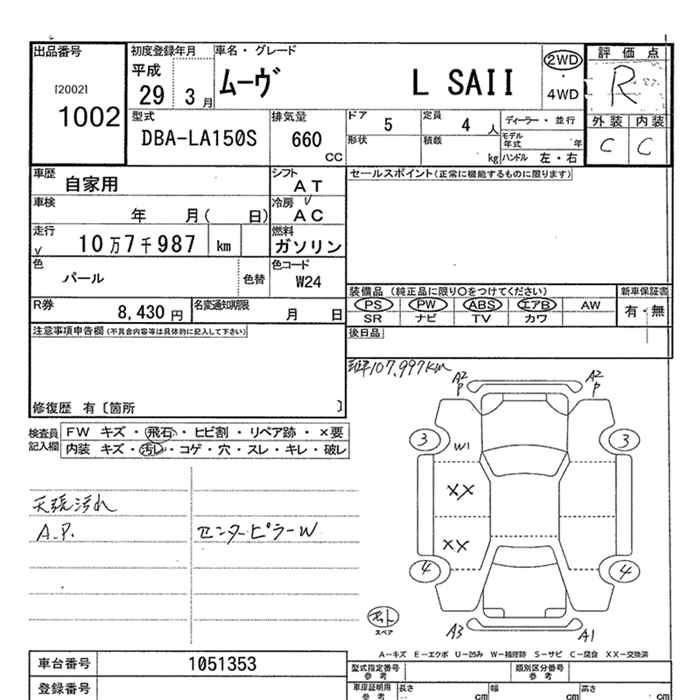 出品番号
[2002]
1002
初度登録年月
平成
29 3 月
車名・グレード
ムーヴ L SAII
2WD
・
4WD
評価点
R
外装 内装
C C
型式
DBA-LA150S
排気量
660
CC
ドア
5
定員
4 人
形状
積載
kg
ディーラー・並行
モデル
年式 年
ハンドル 左・右
車歴
自家用
シフト
AT
セールスポイント(正常に機能するものに限ります)
車検
年 月( 日)
冷房
AC
走行
10万7千987 km
燃料
ガソリン
色
パール
色替
色コード
W24
装備品 (純正品に限り○をつけてください)
PS PW ABS エアB AW
SR ナビ TV カワ
新車保証書
有・無
R券
8,430 円
名変通知期限
月 日
後日品
注意事項申告欄(不具合内容等は具体的に記入して下さい)
107,997km
修復歴 有〔箇所 〕
検査員
記入欄
FW キズ・飛石・ヒビ割・リペア跡・×要
内装 キズ・汚レ・コゲ・穴・スレ・キレ・破レ
天張汚れ
A.P.
センターピラーW
A2
P
A2
P
3
3
W1
XX
XX
4
4
スペア
A3
A1
A-キズ E-エクボ U-凹み W-補修跡 S-サビ C-腐食 XX-交換済
車台番号
1051353
登録番号
型式指定番号
参考
類別区分番号
参考
車庫証明用
参考
長さ
cm
幅
cm
高さ
cm